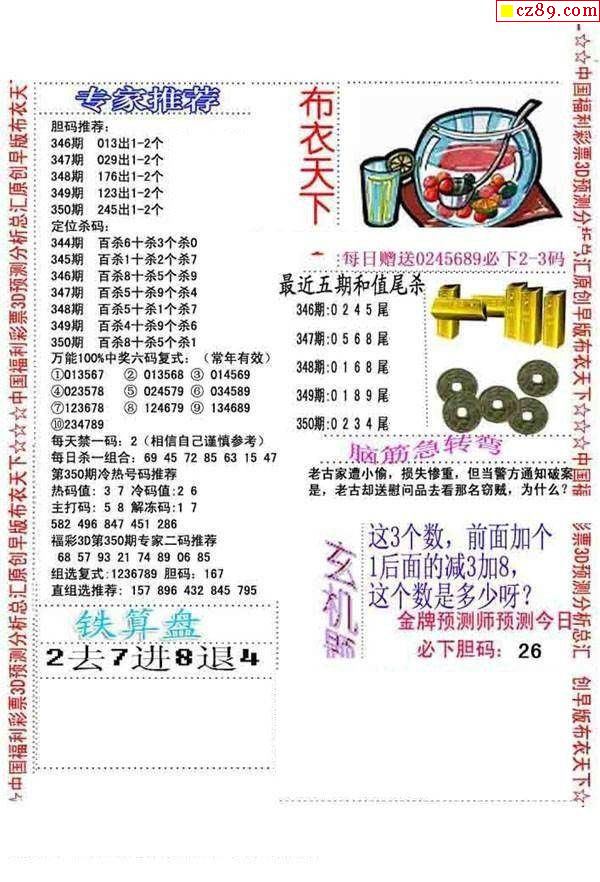 cz89.com
专家推荐
胆码推荐:
346期 013出1-2个
347期 029出1-2个
348期 176出1-2个
349期 123出1-2个
350期 245出1-2个
定位杀码:
344期 百杀6十杀3个杀0
345期 百杀1十杀2个杀7
346期 百杀8十杀5个杀9
347期 百杀5十杀9个杀4
348期 百杀5十杀1个杀7
349期 百杀4十杀9个杀6
350期 百杀8十杀5个杀1
万能100%中奖六码复式:(常年有效)
①013567 ②013568 ③014569
④023578 ⑤024579 ⑥034589
⑦123678 ⑧124679 ⑨134689
⑩234789
每天禁一码:2(相信自己谨慎参考)
每日杀一组合:69 45 72 85 63 15 47
第350期冷热号码推荐
热码值:3 7 冷码值:2 6
主打码:5 8 解冻码:1 7
582 496 847 451 286
福彩3D第350期专家二码推荐
68 57 93 21 74 89 06 85
组选复式:1236789 胆码:167
直组选推荐:157 896 432 845 795
铁算盘
2去7进8退4
布衣天下
每日赠送0245689必下2-3码
最近五期和值尾杀
346期:0245尾
347期:0568尾
348期:0168尾
349期:0189尾
350期:0234尾
脑筋急转弯
老古家遭小偷,损失惨重,但当警方通知破案
是,老古却送慰问品去看那名窃贼,为什么?
玄机
这3个数,前面加个
1后面的减3加8,
这个数是多少呀?
金牌预测师预测今日
必下胆码: 26
☆中国福利彩票3D预测分析总汇原创早版布衣天下☆☆☆中国福利彩票3D预测分析总汇原创早版布衣天
☆☆中国福利彩票3D预测分析总汇原创早版布衣天下☆☆☆中国福
彩票3D预测分析总汇
创早版布衣天下☆